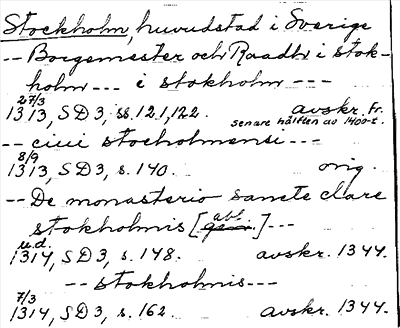 Stockholm, huvudstad i Sverige
-- Borgemester och Raadh i stok-
holm --- i stokholm ---
27/3
1313, SD3, ss. 121, 122. avskr. fr.
senare hälften av 1400-t.
-- ciui stocholmensi ---
8/9
1313, SD3, s. 140. orig.
-- De monasterio sancte clare
stokholmis [abl.] ---
u.d.
1314, SD3, s. 148. avskr. 1344.
-- stokholmis ---
7/3
1314, SD3, s. 162. avskr. 1344.